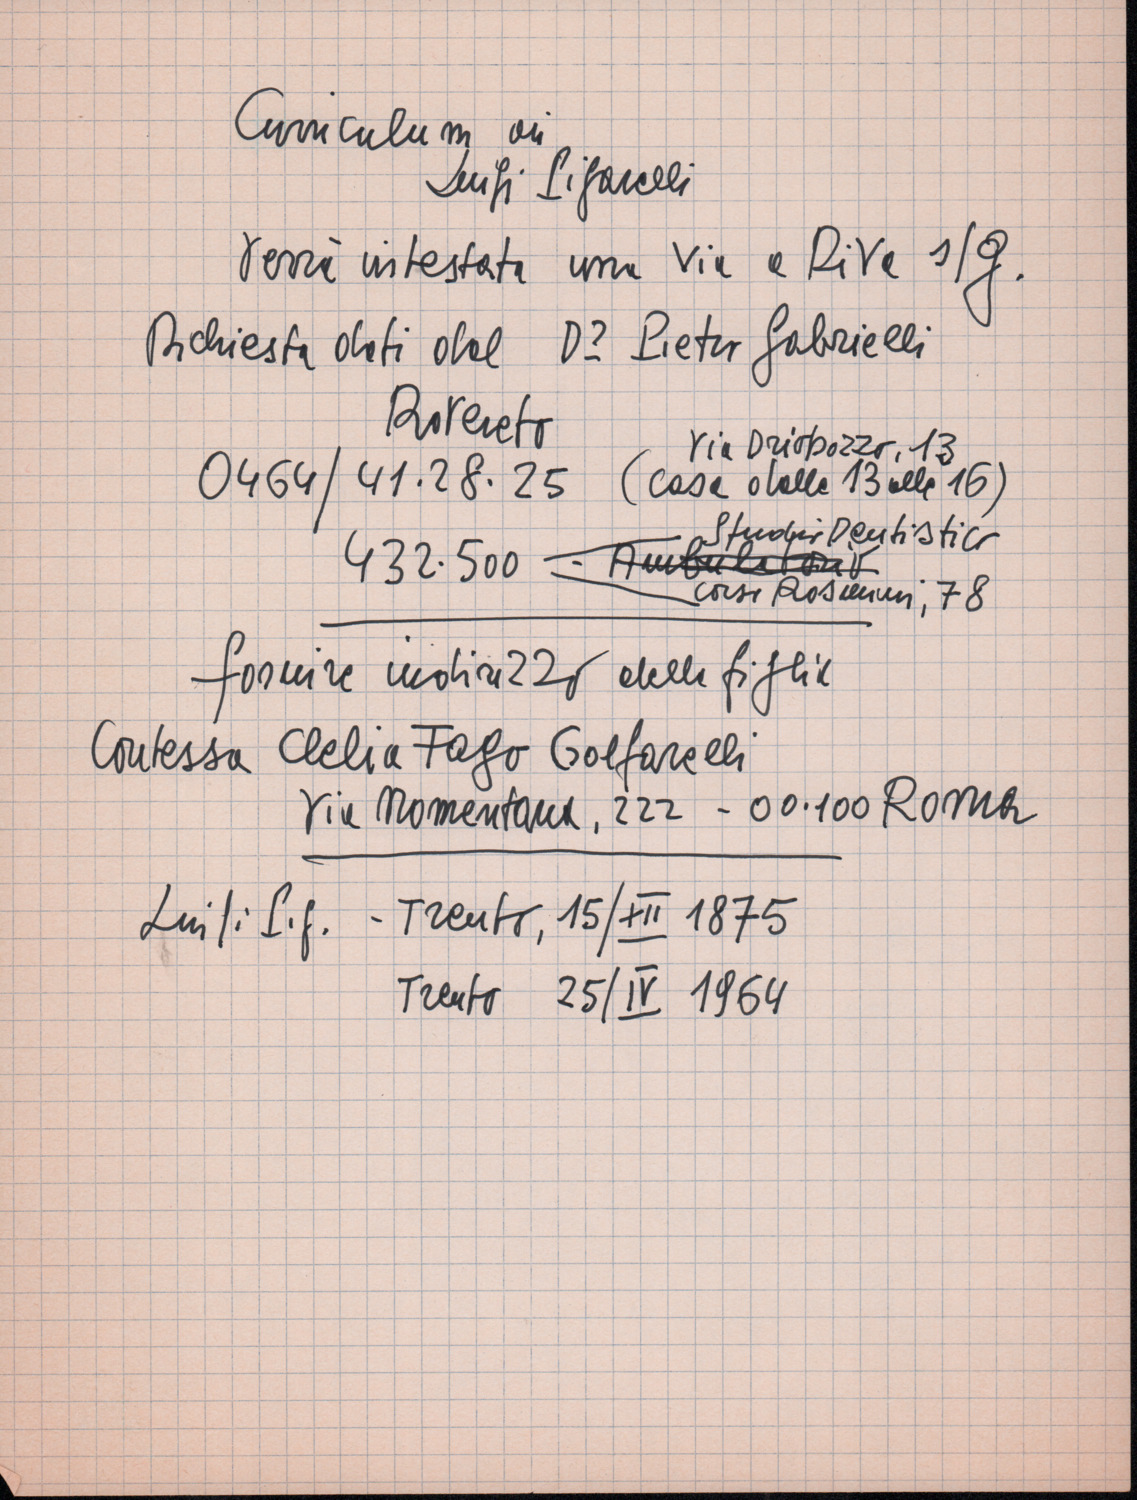 Curriculum di
Luigi Pigarelli
Verrà intestata una Via a Riva s/g.
Richiesta dati dal D? Pietro Gabrielli
Rovereto
Via Driopozzo, 13
0464/41.28.25 (casa dalle 13 alle 16)
Studio Dentistico
432.500 - Ambulatorio
corso Rosmini, 78
fornire indirizzo della figlia
Contessa Clelia Fago Golfarelli
Via Nomentana, 222 - 00.100 Roma
Luigi Pig. - Trento, 15/XII 1875
Trento 25/IV 1964